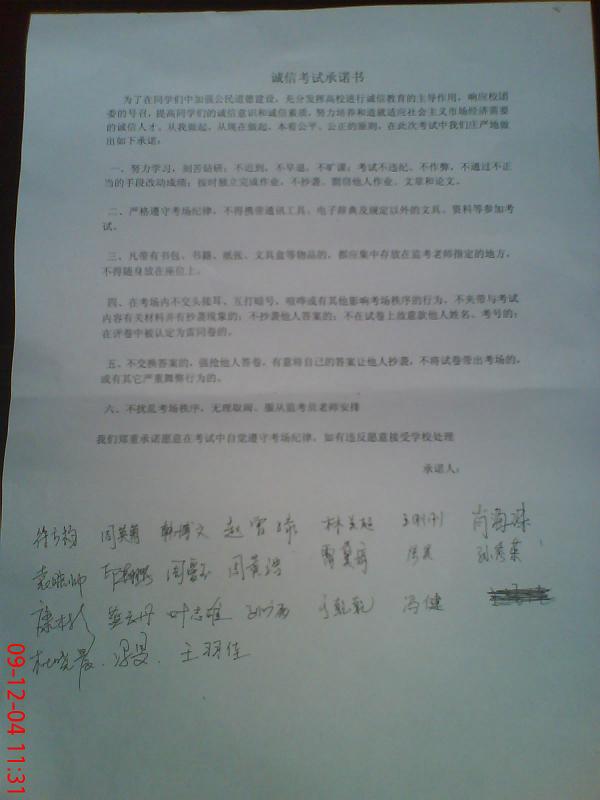 诚信考试承诺书
为了在同学们中加强公民道德建设，充分发挥高校进行诚信教育的主导作用，响应校团
委的号召，提高同学们的诚信意识和诚信素质，努力培养和造就适应社会主义市场经济需要
的诚信人才。从我做起，从现在做起，本着公平、公正的原则，在此次考试中我们庄严地做
出如下承诺：
一、努力学习，刻苦钻研；不迟到、不早退、不旷课；考试不违纪、不作弊，不通过不正
当的手段改动成绩；按时独立完成作业，不抄袭、剽窃他人作业、文章和论文。
二、严格遵守考场纪律，不得携带通讯工具、电子辞典及规定以外的文具、资料等参加考
试。
三、凡带有书包、书籍、纸张、文具盒等物品的，都应集中存放在监考老师指定的地方，
不得随身放在座位上。
四、在考场内不交头接耳、互打暗号、喧哗或有其他影响考场秩序的行为，不夹带与考试
内容有关材料并有抄袭现象的；不抄袭他人答案的；不在试卷上故意款他人姓名、考号的；
在评卷中被认定为雷同卷的。
五、不交换答案的，强抢他人答卷，有意将自己的答案让他人抄袭，不将试卷带出考场的，
或有其它严重舞弊行为的。
六、不扰乱考场秩序，无理取闹、服从监考员老师安排
我们郑重承诺愿意在考试中自觉遵守考场纪律，如有违反愿意接受学校处理
承诺人：
韩博文 林美超 王刚刚
袁晓帅 周美
叶志雄 冯健
杜晓晨 王羽佳
09-12-04 11:31